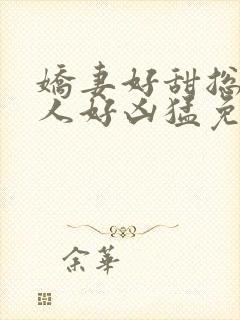 嬌妻好甜摠
人好凶猛免
余華